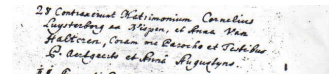 28 Contraxerunt Matrimonium Cornelius
Luysterborg ex Nispen, et Anna Van
Halteren, Coram me Parocho et Testibus
P. Aertgaerts et Anna Augustyns.